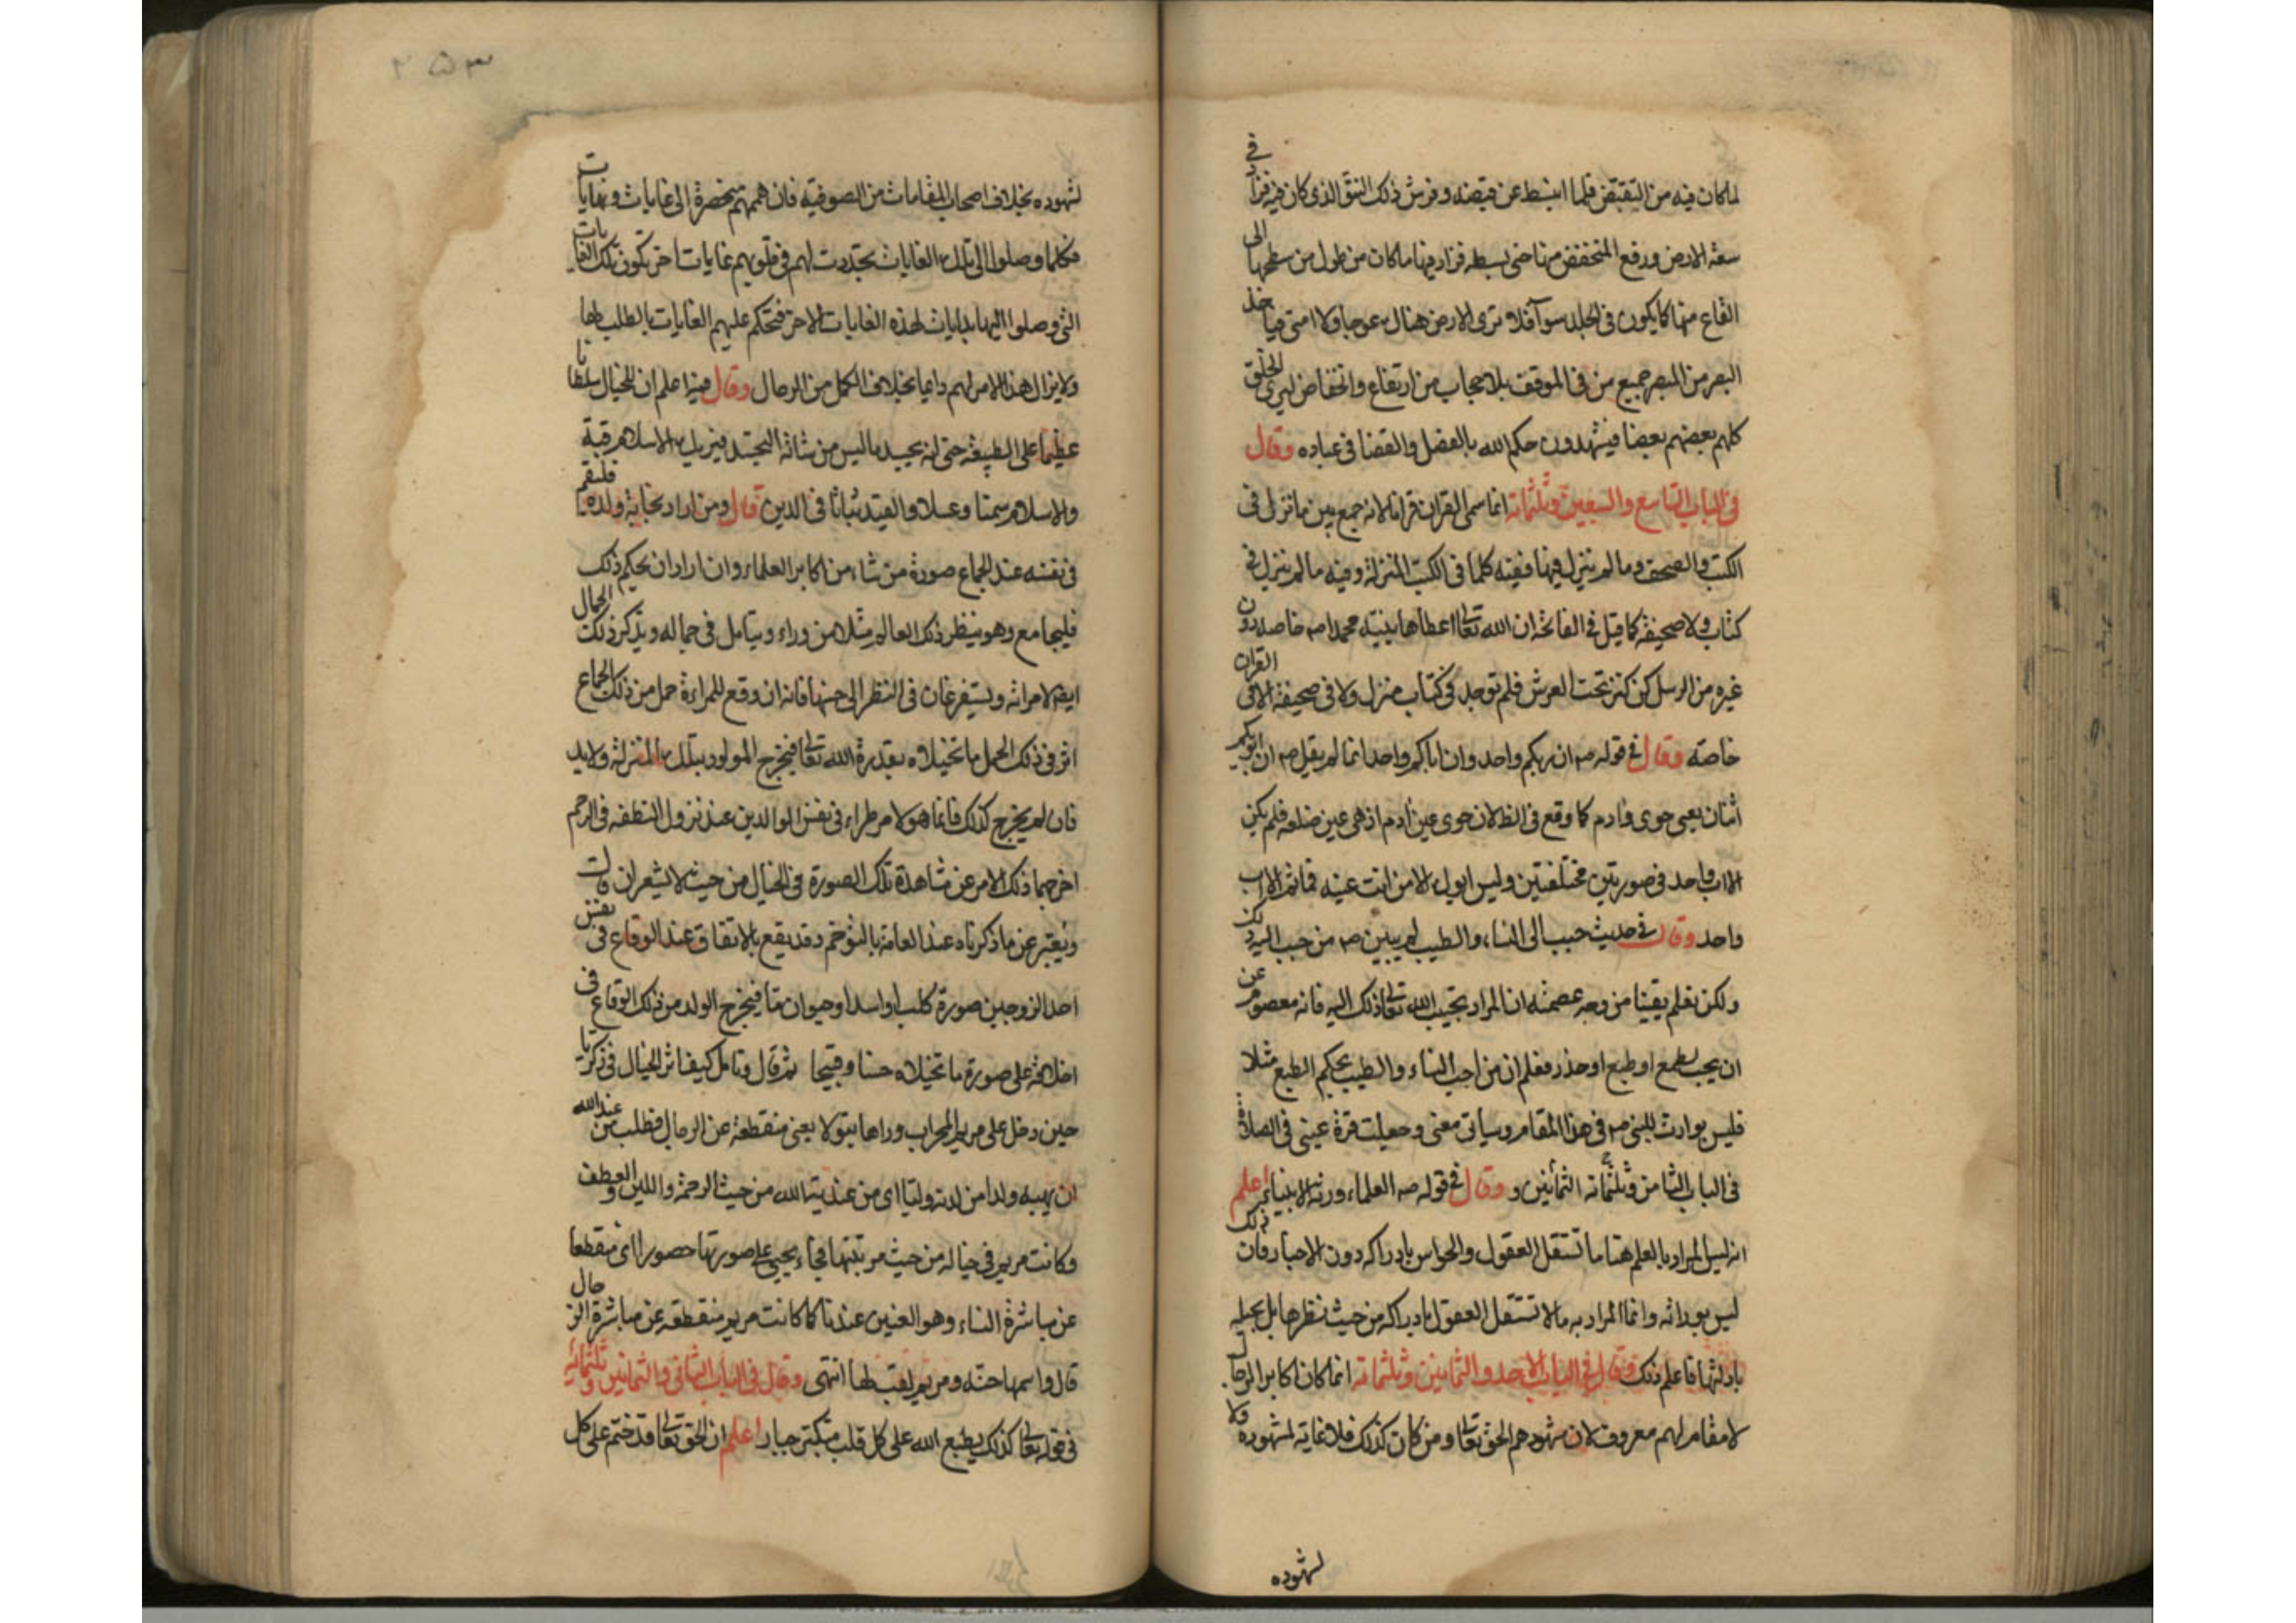 لما كان فيه من التقبض فلما انبسط عن قبضه وفرش ذلك النتو الذي كان فيه فزاد في
سعة الارض ورفع المنخفض منها حتى بسطه فزاد فيها ما كان من طول من سطحها الى
القاع منها كما يكون في الجلد سوآ فلا ترى الارض هنالك عوجا ولا امتى فياخذ
البصر من المبصر جميع من في الموقف بلا حجاب من ارتفاع وانخفاض ليرى الخلق
كلهم بعضهم بعضا فيشهدون حكم الله بالفصل والقضا في عباده وقال
في الباب التاسع والسبعين وثلثمائة انما سمى القران قرانا لانه جمع بين ما نزل في
الكتب والصحف وما لم ينزل فيها ففيه كلما في الكتب المنزلة وفيه ما لم ينزل في
كتاب ولا صحيفة كما قيل في الفاتحة ان الله تعالى اعطاها نبيه محمدا صم خاصه دون
غيره من الرسل من كنز تحت العرش فلم توجد في كتاب منزل ولا في صحيفة الا في القران
خاصة وقال في قوله صم ان ربكم واحد وان اباكم واحد انما لم يقل صم ان ابويكم
اثنان يعني حوى وادم كما وقع في الظ لان حوى عين ادم اذ هي عين ضلعه فلم يكن
الا اب واحد في صورتين مختلفتين وليس ابوك الا من انت عينه فما ثم الا اب
واحد وقال في حديث حبب الى النساء والطيب لم يبين صم من حبب اليه ذلك
ولكن نعلم يقينا من وجه عصمته ان المراد تحبيب الله تعالى ذلك اليه فانه معصوم عن
ان يحب لطمع او طبع او حذر فعلم ان من احب النساء والطيب بحكم الطبع مثلا
فليس بوارث للنبي صم في هذا المقام وسياتي معنى وجعلت قرة عيني في الصلاة
في الباب الثامن وثلثمائة الثمانين و وقال في قوله صم العلماء ورثة الانبياء اعلم
انه ليس المراد بالعلم هنا ما تستقل العقول والحواس بادراكه دون الاخبار فان ذلك
ليس بوراثه وانما المراد به ما لا تستقل العقول بادراكه من حيث نظرها بل بحيله
بادلتها فاعلم ذلك وقال في الباب الاحد والثمانين وثلثمائة انما كان اكابر الرجال
لا مقام لهم معروف لان مشهودهم الحق تعالى ومن كان كذلك فلا غاية لشهوده ولا
لشهوده
٢٥٣
لشهوده بخلاف اصحاب المقامات من الصوفية فان هممهم منحصرة الى غايات ونهايات
فكلما وصلوا الى تلك الغايات تجددت لهم في قلوبهم غايات اخر تكون تلك الغايات
التي وصلوا اليها بدايات لهذه الغايات الاخر فتحكم عليهم الغايات بالطلب لها
ولا يزال هذا الامر لهم دايما بخلاف الكمل من الرجال وقال فيه اعلم ان للخيال سلطانا
عظيما على الطبيعة حتى انه يجسد ما ليس من شانه التجسد فيريك الاسلام قبة
والاسلام سمنا وعسلا والقيد ثباتا في الدين قال ومن اراد نجابة ولده فليقم
في نفسه عند الجماع صورة من شاء من اكابر العلماء وان اراد ان يحكم ذلك
فليجامع وهو ينظر ذلك العالم مثلا من وراء ويتامل في جماله ويذكر ذلك الجمال
ايضا لامراته ويستفرغان في النظر الى حسنها فانه ان وقع للمراءة حمل من ذلك الجماع
اثر في ذلك الحمل ما تخيلاه بقدرة الله تعالى فيخرج المولود بتلك المنزلة ولا بد
فان لم يخرج كذلك فانما هو لامر طراء في نفس الوالدين عند نزول النطفة في الرحم
اخرجهما ذلك الامر عن مشاهدة تلك الصورة في الخيال من حيث لا يشعران قالت
ويعبر عن ما ذكرناه عند العامة بالتوحم وقد يقع بالاتفاق عند الوقاع في نفس
احد الزوجين صورة كلب او اسد او حيوان ما فيخرج الولد من ذلك الوقاع في
اخلاقه على صورة ما تخيلاه حسنا وقبيحا ثم قال وتامل كيف اثر الخيال في زكريا
حين دخل على مريم المحراب وراها بتولا يعني منقطعة عن الرجال فطلب من عند الله
ان يهبه ولدا من لدنه وليا اى من عنديته الله من حيث الرحمة واللين والعطف
وكانت مريم في خياله من حيث مرتبتها فجاء يحيى على صورتها حصورا اى منقطعا
عن مباشرة النساء وهو العنين عندنا كما كانت مريم منقطعة عن مباشرة الرجال
قال واسمها حنه ومريم لقب لها انتهى وقال في الباب الثاني والثمانين وثلثمائة
في قوله تعالى كذلك يطبع الله على كل قلب متكبر جبار اعلم ان الحق تعالى قد ختم على كل